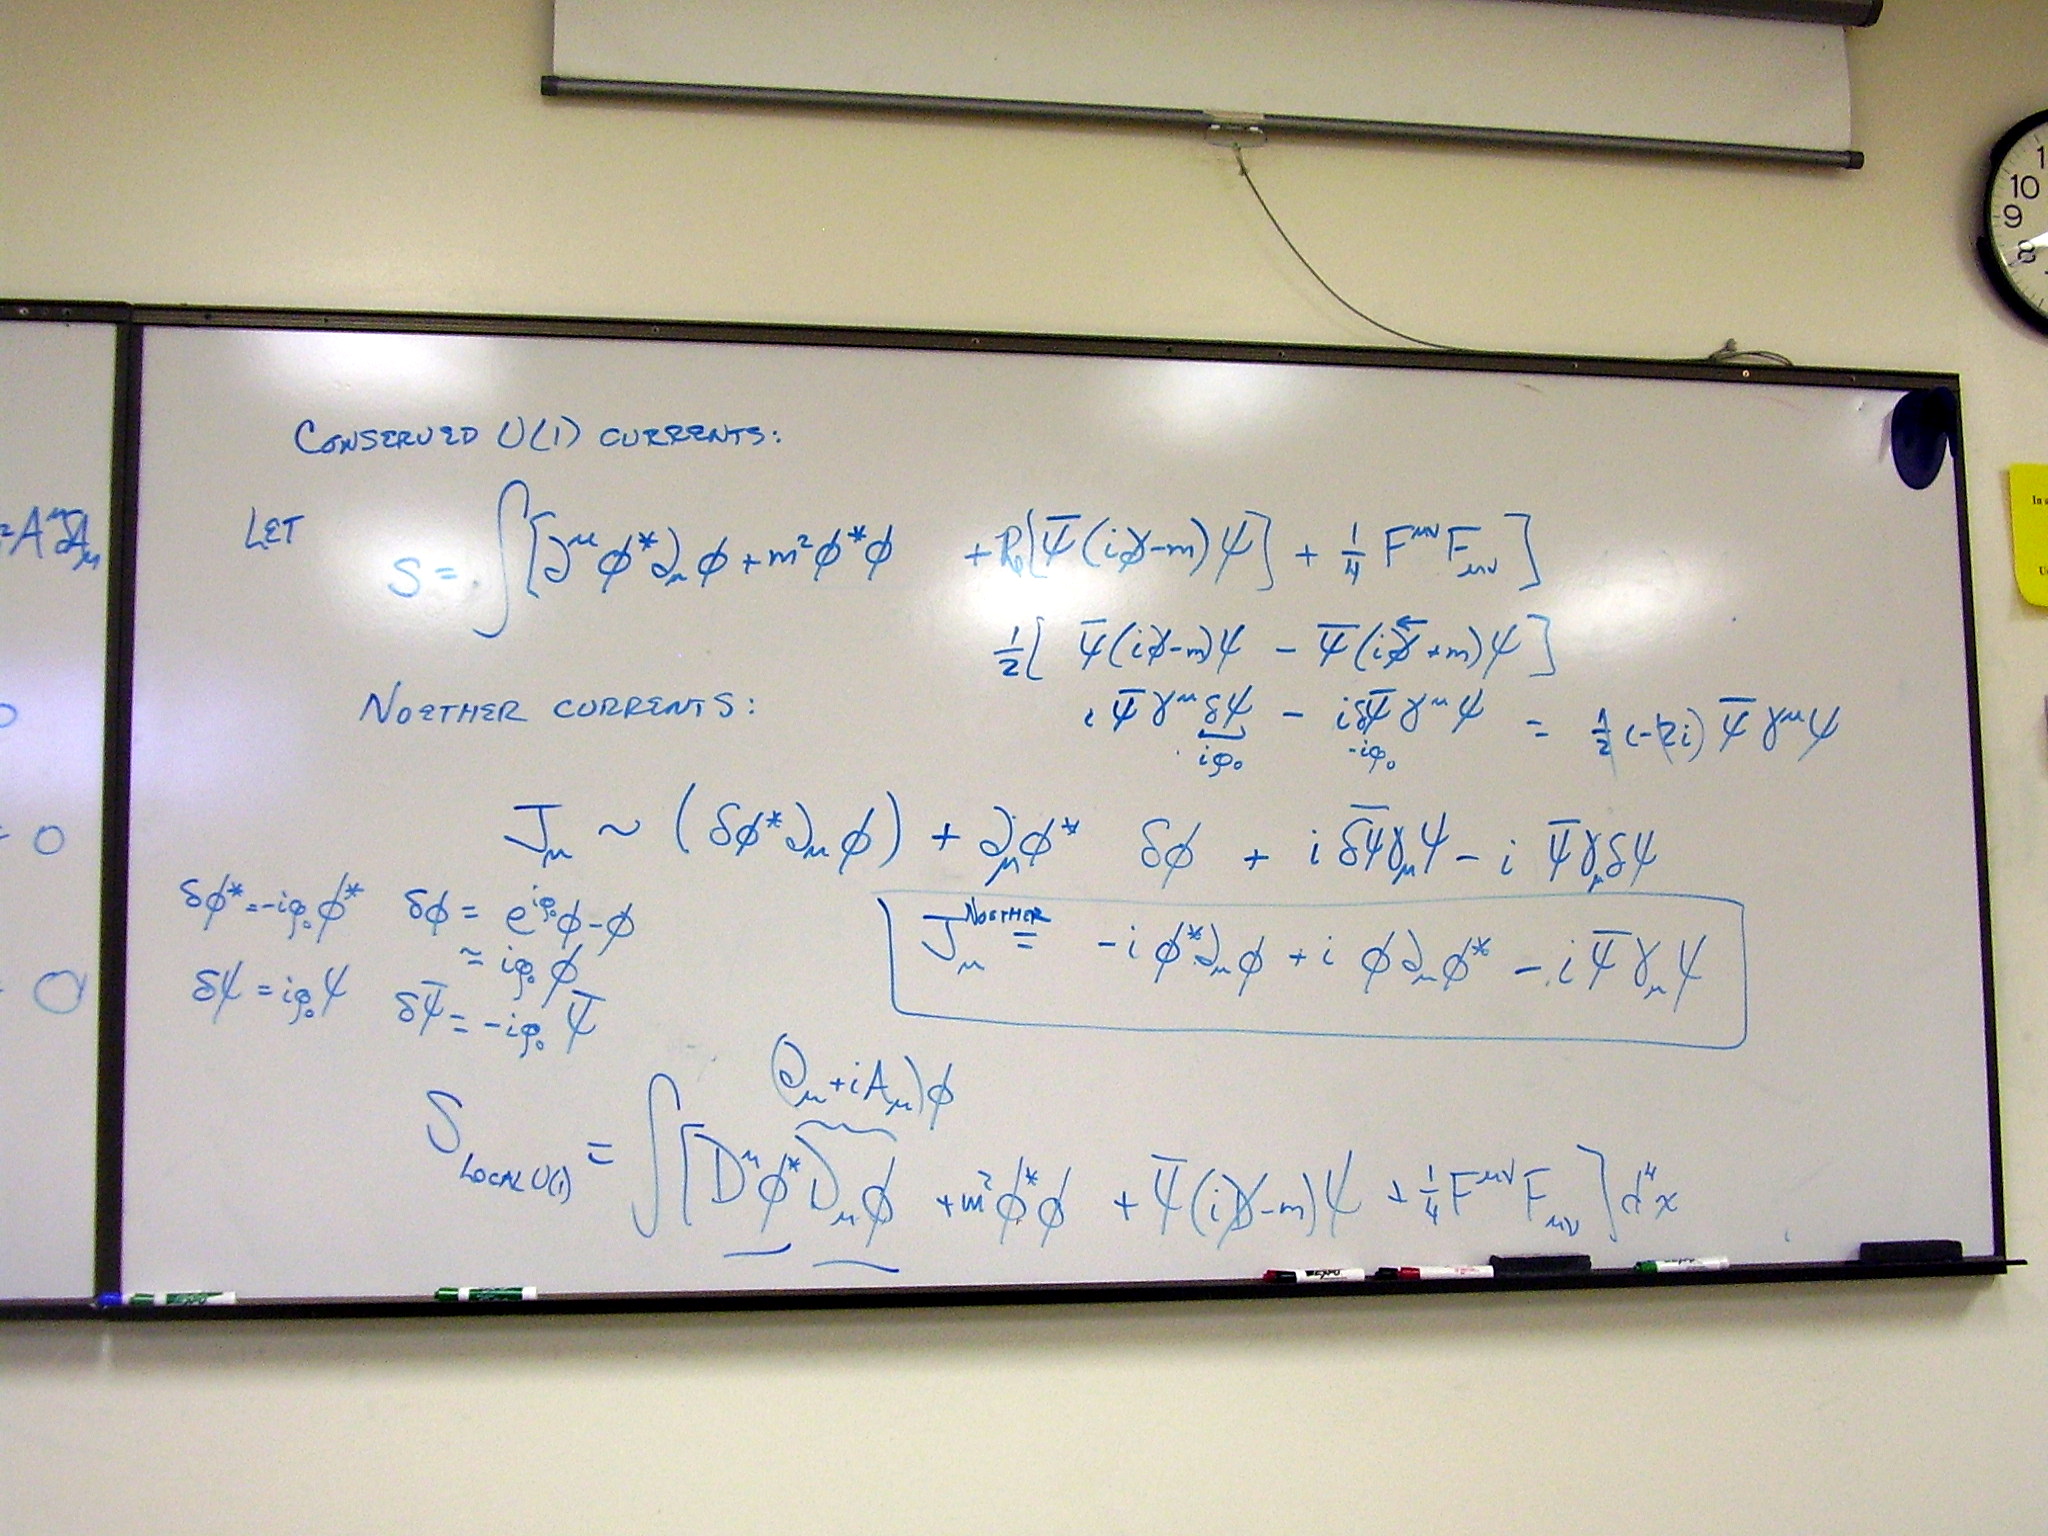 CONSERVED U(1) CURRENTS:
LET S = ∫[∂^μ φ* ∂_μ φ + m² φ*φ + Re[ψ̄(i∂̸-m)ψ] + 1/4 F^{μν} F_{μν}]
1/2 [ψ̄(i∂̸-m)ψ - ψ̄(i∂̸⃖+m)ψ]
i ψ̄ γ^μ δψ - i δψ̄ γ^μ ψ = 1/2 (-2i) ψ̄ γ^μ ψ
iφ₀ -iφ₀
NOETHER CURRENTS:
J_μ ~ (δφ* ∂_μ φ) + ∂_μ φ* δφ + i δψ̄ γ_μ ψ - i ψ̄ γ_μ δψ
δφ* = -iφ₀ φ* δφ = e^{iφ₀} φ - φ
≈ iφ₀ φ
δψ = iφ₀ ψ δψ̄ = -iφ₀ ψ̄
J_μ^{NOETHER} = -i φ* ∂_μ φ + i φ ∂_μ φ* - i ψ̄ γ_μ ψ
(∂_μ + iA_μ)φ
S_{LOCAL U(1)} = ∫[D^μ φ* D_μ φ + m² φ*φ + ψ̄(iD̸-m)ψ + 1/4 F^{μν} F_{μν}] d⁴x
²A^μ A_μ
= 0
0
10
9
8
In
EXPO